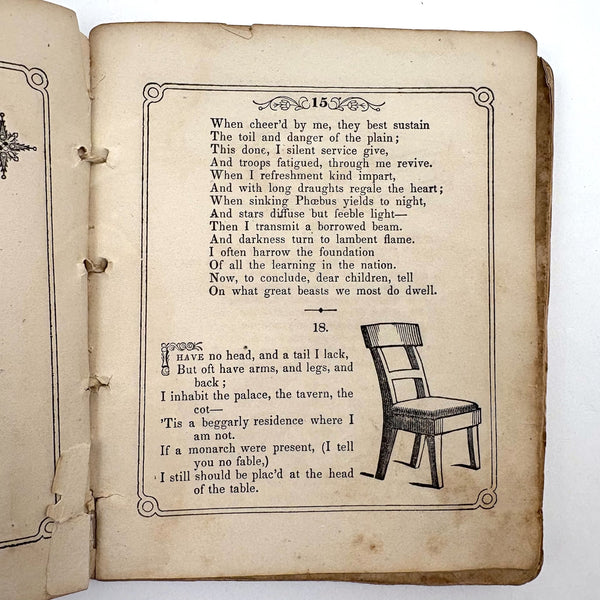 15
When cheer'd by me, they best sustain
The toil and danger of the plain;
This done, I silent service give,
And troops fatigued, through me revive.
When I refreshment kind impart,
And with long draughts regale the heart;
When sinking Phœbus yields to night,
And stars diffuse but feeble light—
Then I transmit a borrowed beam.
And darkness turn to lambent flame.
I often harrow the foundation
Of all the learning in the nation.
Now, to conclude, dear children, tell
On what great beasts we most do dwell.
18.
I HAVE no head, and a tail I lack,
But oft have arms, and legs, and
back;
I inhabit the palace, the tavern, the
cot—
'Tis a beggarly residence where I
am not.
If a monarch were present, (I tell
you no fable,)
I still should be plac'd at the head
of the table.